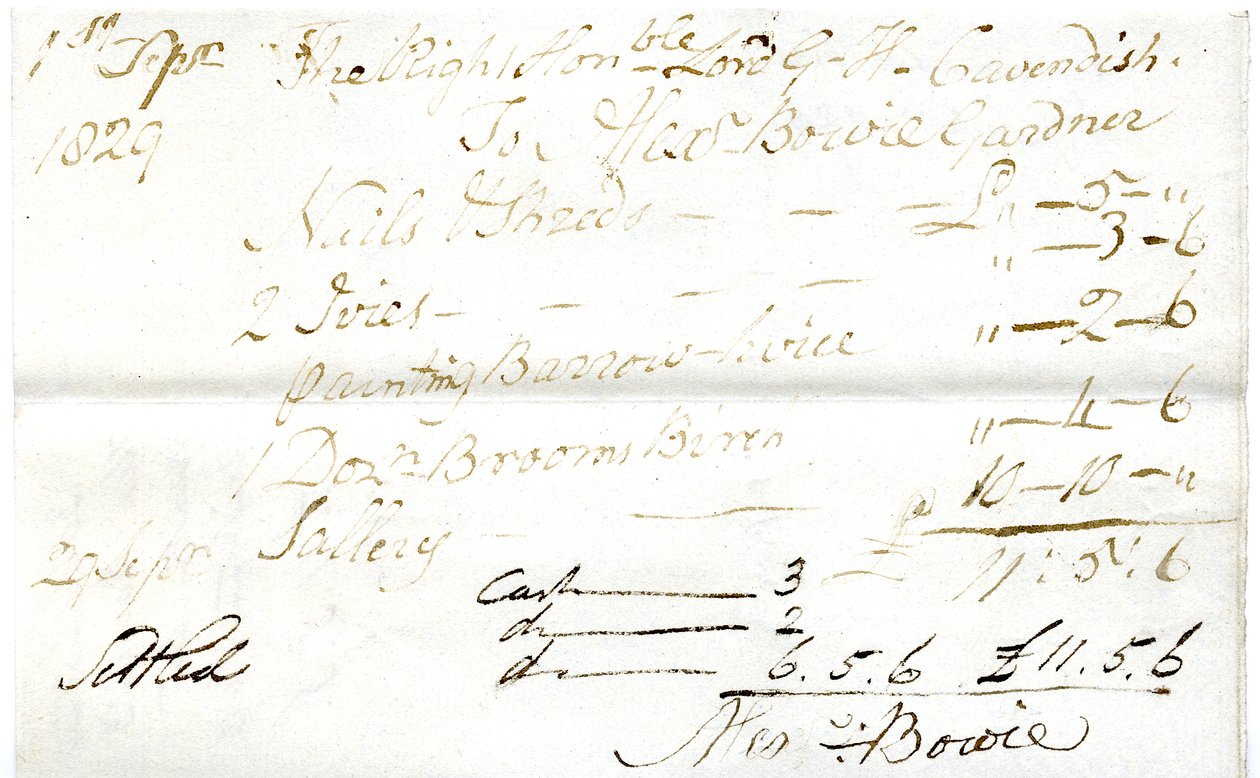 1st Sepr The Right Honble Lord G-H- Cavendish.
1829 To Alexr Bowie Gardner
Nails & Shreds — — — £ " — 5 - "
2 Ivies — — — — " — 3 - 6
painting Barrow twice " — 2 - 6
1 Dozn Brooms Birch " — 4 - 6
29 Sepr Sallery — 10 — 10 - "
11 : 5 : 6
Cash — 3
do — 2
Settled do — 6. 5. 6 £11. 5. 6
Alexr Bowie